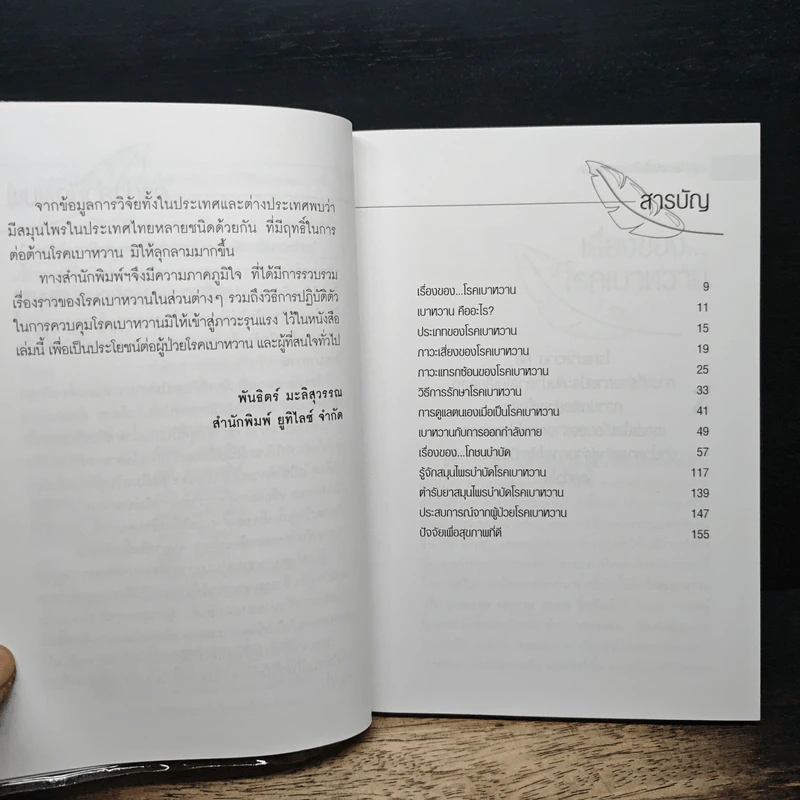 จากข้อมูลการวิจัยทั้งในประเทศและต่างประเทศพบว่า
มีสมุนไพรในประเทศไทยหลายชนิดด้วยกัน ที่มีฤทธิ์ในการ
ต่อต้านโรคเบาหวาน มิให้ลุกลามมากขึ้น
ทางสำนักพิมพ์ฯจึงมีความภาคภูมิใจ ที่ได้มีการรวบรวม
เรื่องราวของโรคเบาหวานในส่วนต่างๆ รวมถึงวิธีการปฏิบัติตัว
ในการควบคุมโรคเบาหวานมิให้เข้าสู่ภาวะรุนแรง ไว้ในหนังสือ
เล่มนี้ เพื่อเป็นประโยชน์ต่อผู้ป่วยโรคเบาหวาน และผู้ที่สนใจทั่วไป
พันธิตร์ มะลิสุวรรณ
สำนักพิมพ์ ยูทิไลซ์ จำกัด
สารบัญ
เรื่องของ...โรคเบาหวาน 9
เบาหวาน คืออะไร? 11
ประเภทของโรคเบาหวาน 15
ภาวะเสี่ยงของโรคเบาหวาน 19
ภาวะแทรกซ้อนของโรคเบาหวาน 25
วิธีการรักษาโรคเบาหวาน 33
การดูแลตนเองเมื่อเป็นโรคเบาหวาน 41
เบาหวานกับการออกกำลังกาย 49
เรื่องของ...โภชนบำบัด 57
รู้จักสมุนไพรบำบัดโรคเบาหวาน 117
ตำรับยาสมุนไพรบำบัดโรคเบาหวาน 139
ประสบการณ์จากผู้ป่วยโรคเบาหวาน 147
ปัจจัยเพื่อสุขภาพที่ดี 155